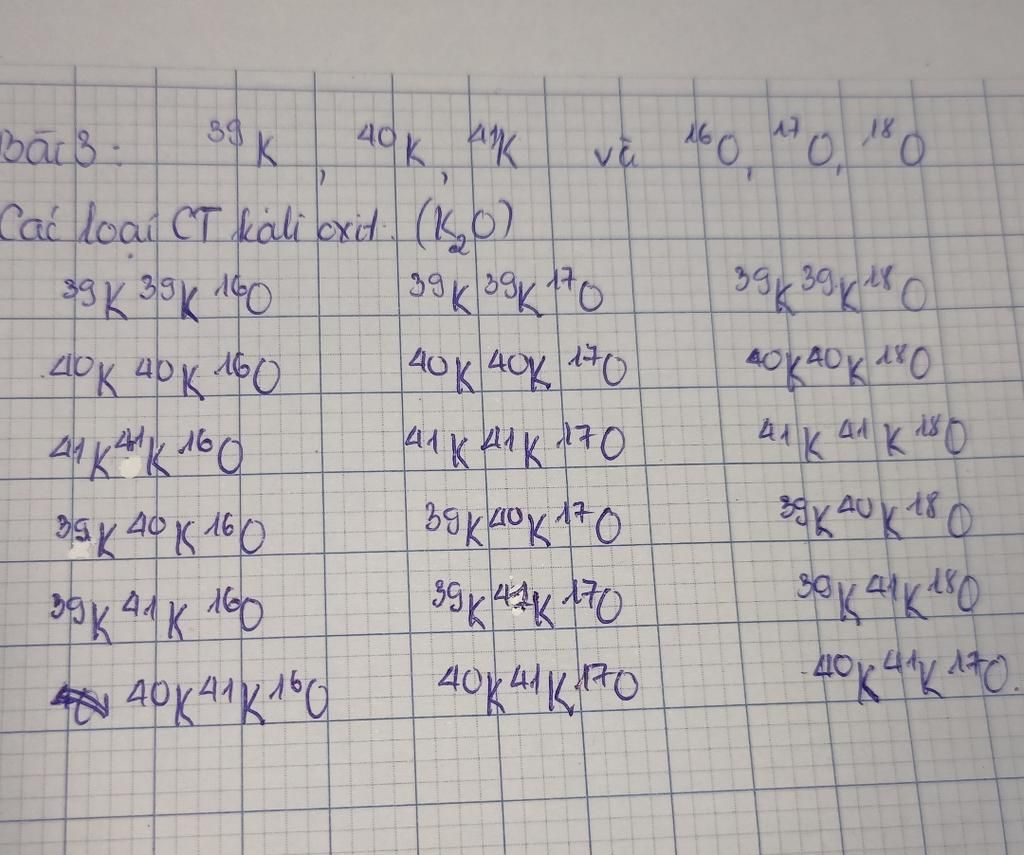 Bài 3: ³⁹K, ⁴⁰K, ⁴¹K và ¹⁶O, ¹⁷O, ¹⁸O
Các loại CT kali oxit. (K₂O)
³⁹K ³⁹K ¹⁶O ³⁹K ³⁹K ¹⁷O ³⁹K ³⁹K ¹⁸O
⁴⁰K ⁴⁰K ¹⁶O ⁴⁰K ⁴⁰K ¹⁷O ⁴⁰K ⁴⁰K ¹⁸O
⁴¹K ⁴¹K ¹⁶O ⁴¹K ⁴¹K ¹⁷O ⁴¹K ⁴¹K ¹⁸O
³⁹K ⁴⁰K ¹⁶O ³⁹K ⁴⁰K ¹⁷O ³⁹K ⁴⁰K ¹⁸O
³⁹K ⁴¹K ¹⁶O ³⁹K ⁴¹K ¹⁷O ³⁹K ⁴¹K ¹⁸O
⁴⁰K ⁴¹K ¹⁶O ⁴⁰K ⁴¹K ¹⁷O ⁴⁰K ⁴¹K ¹⁷O.